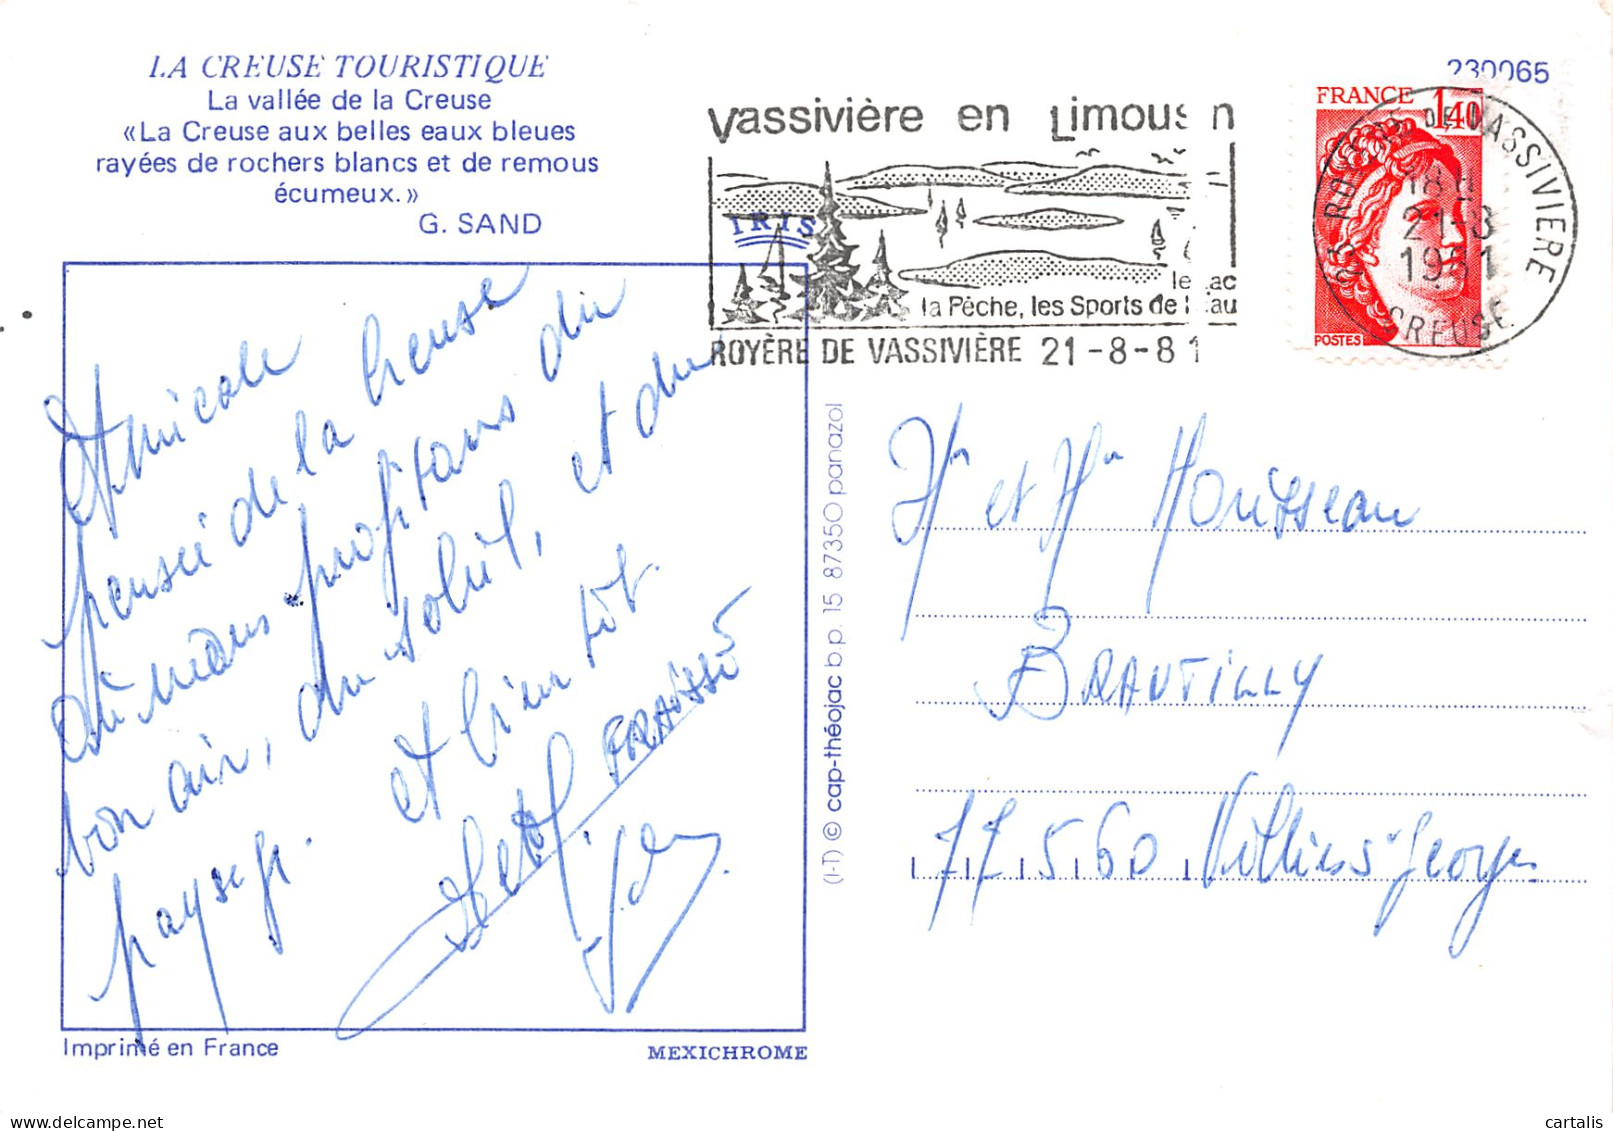 LA CREUSE TOURISTIQUE
La vallée de la Creuse
«La Creuse aux belles eaux bleues
rayées de rochers blancs et de remous
écumeux.»
G. SAND
230065
Vassivière en Limous n
IRIS
le ac
la Pêche, les Sports de l au
ROYÈRE DE VASSIVIÈRE 21-8-81
FRANCE 1,40
POSTES
DE VASSIVIERE
18 H
21-8
1981
CREUSE
Amicale
pensée de la Creuse
où nous profitons du
bon air, du soleil, et du
paysage. et bientôt.
Mr et Mme Housseau
BRAUTILLY
77560 Villiers St Georges
(I-T) © cap-théojac b.p. 15 87350 panazol
Imprimé en France
MEXICHROME
cartalis